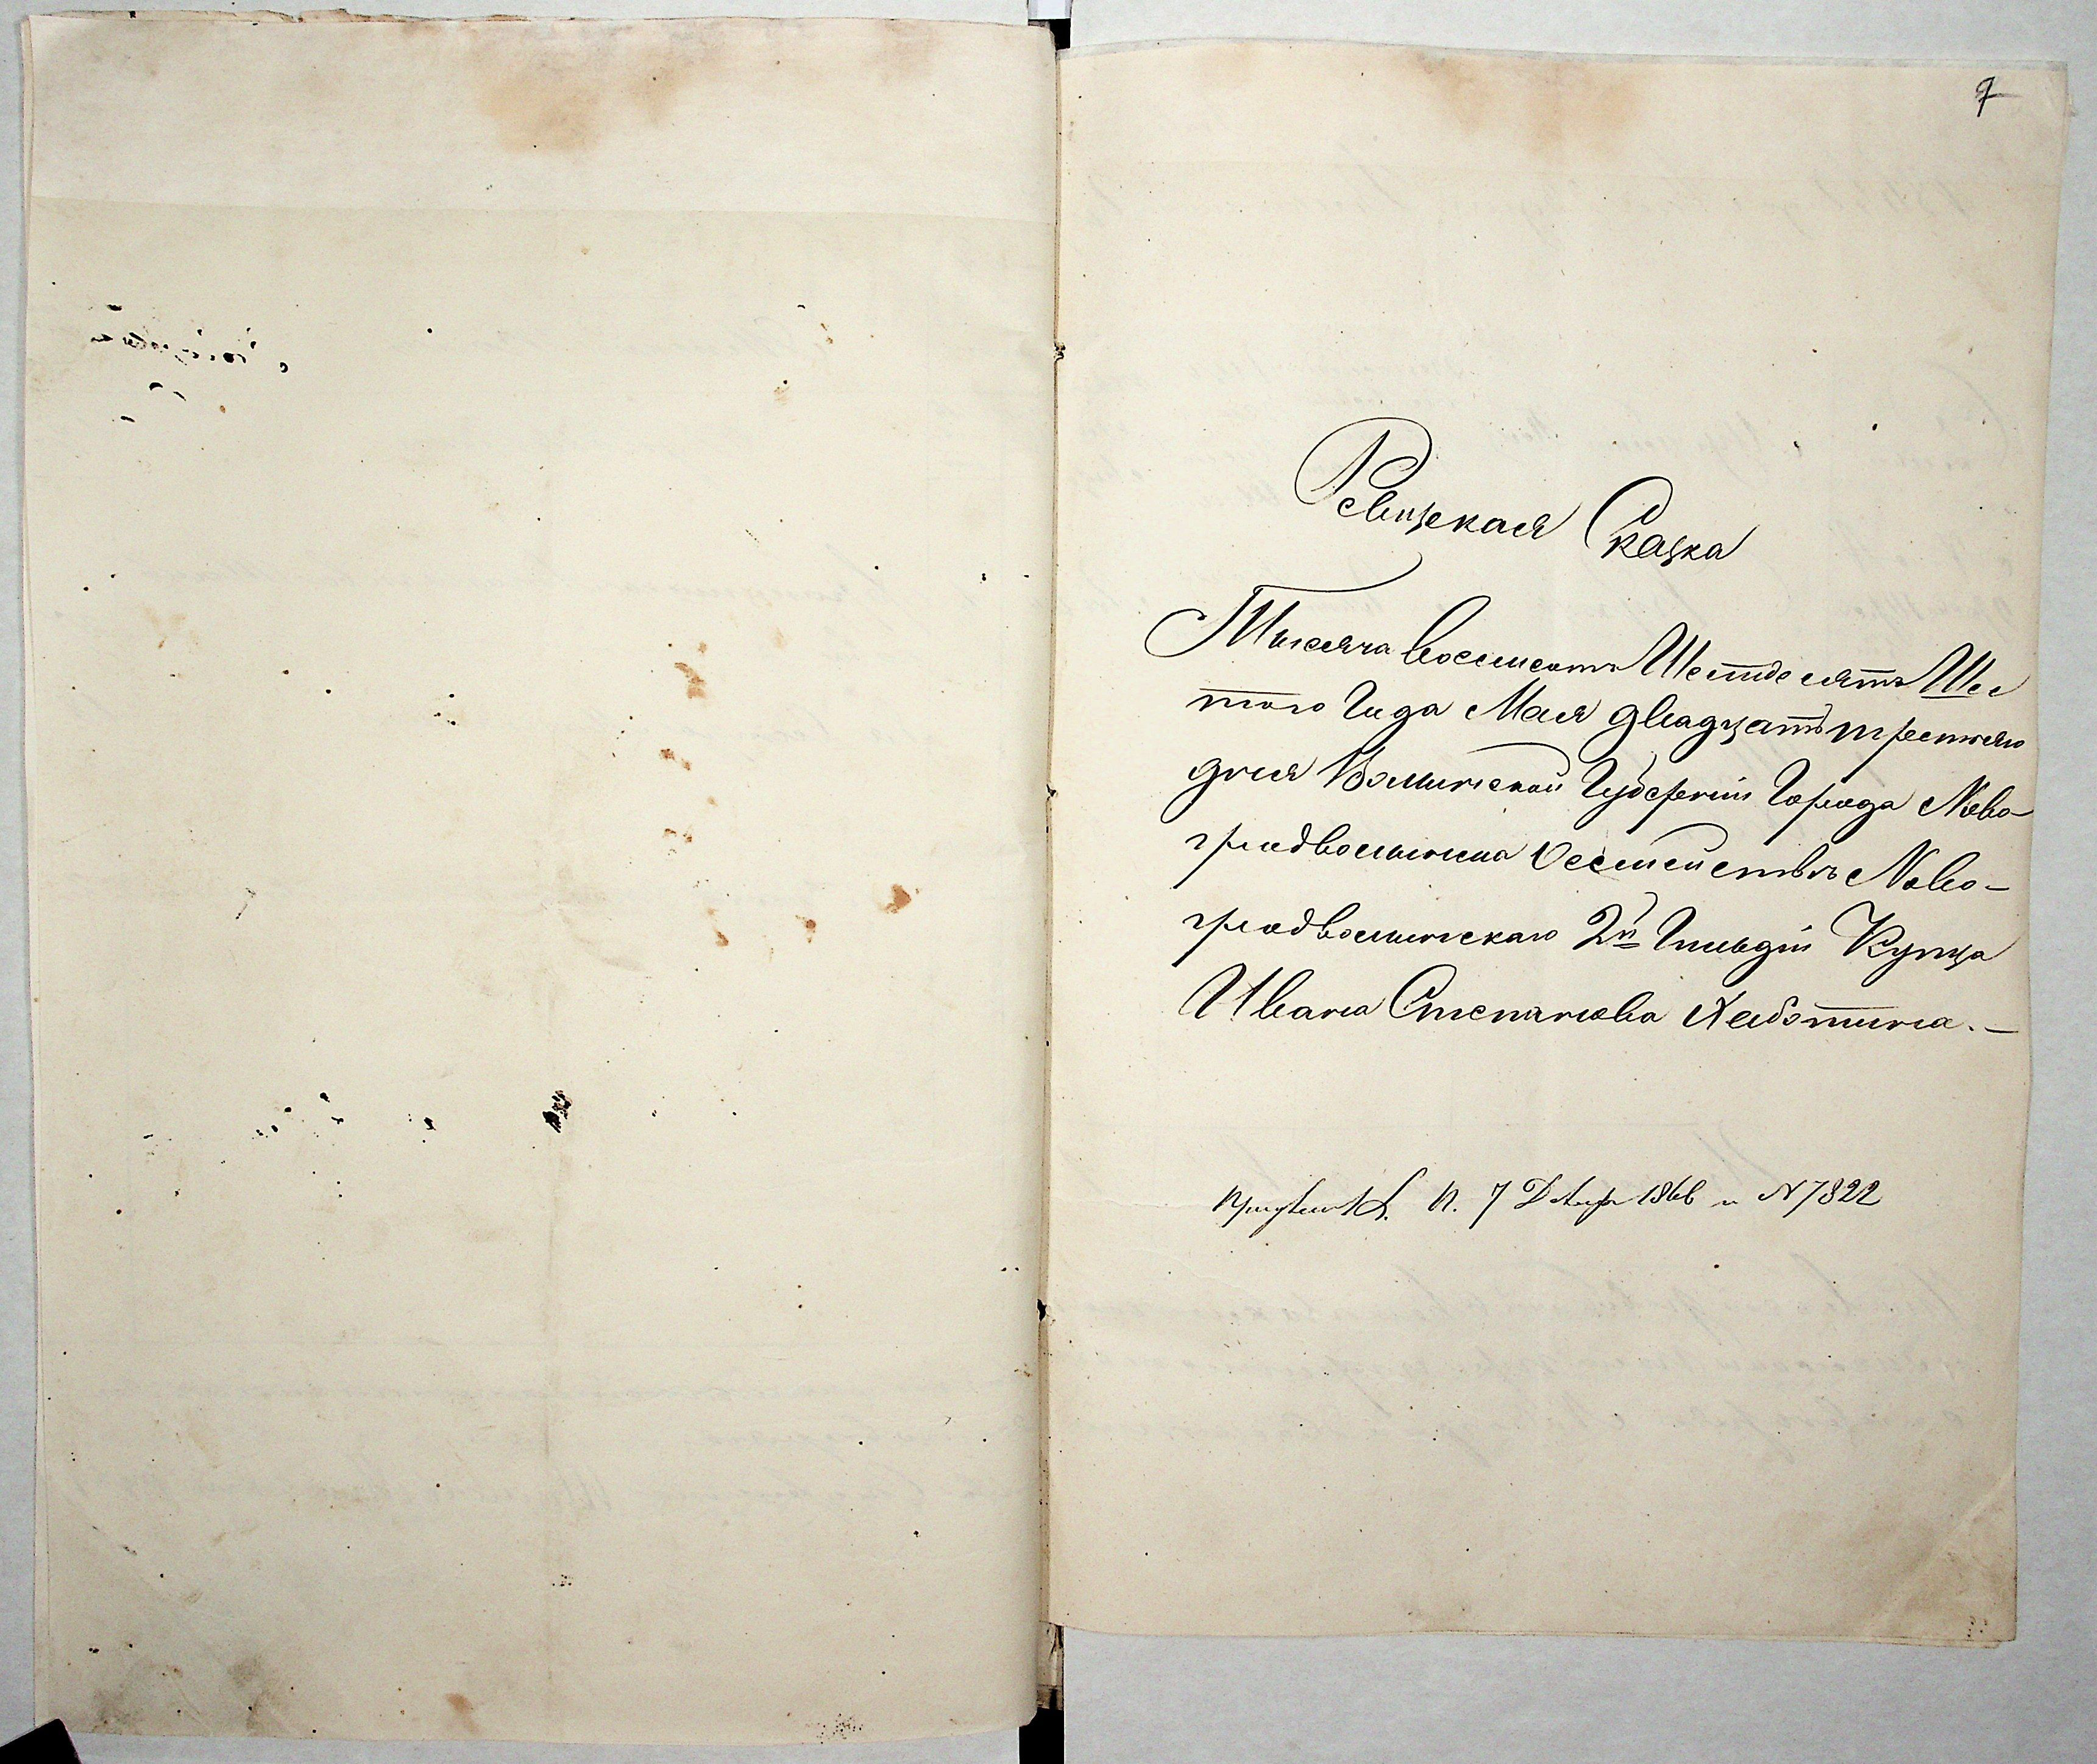 7
Ревизская Сказка
Тысяча восемсотъ Шестдесятъ Шес
того Года Мая двадцать третьяго
дня Волынской Губерніи Города Ново-
градволынска О семействѣ Ново-
градволынскаго 2й Гильдіи Купца
Ивана Степанова Хаботина.-
К. П. 7 Декабр 1866 N 7822